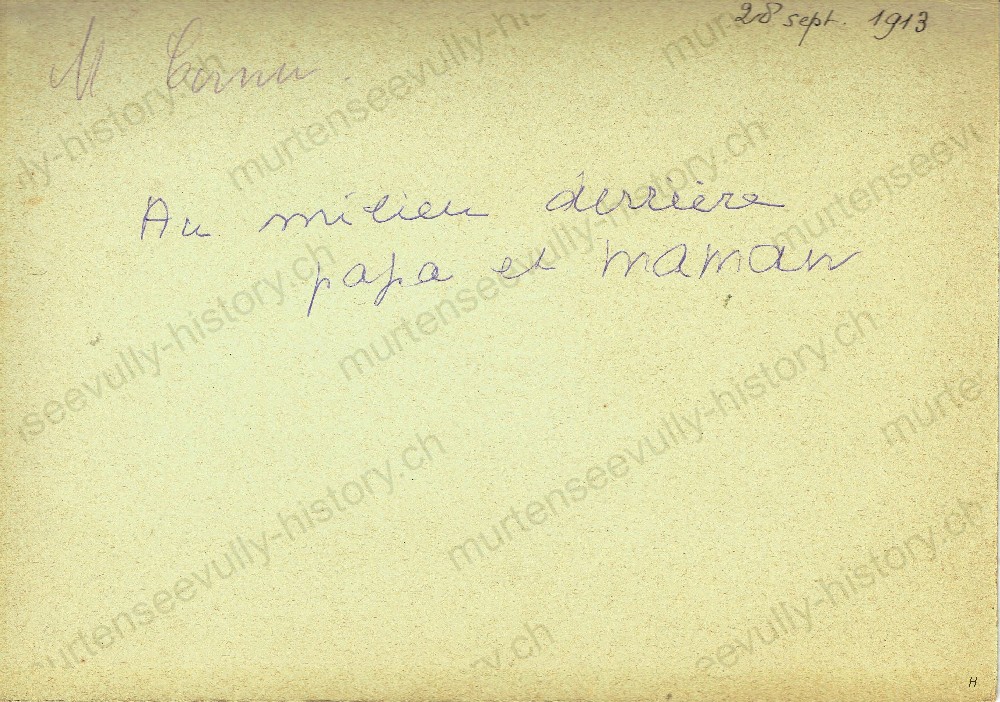 28 sept. 1913
M. Cornu.
Au milieu derrière
papa et maman
murtenseevully-history.ch
H